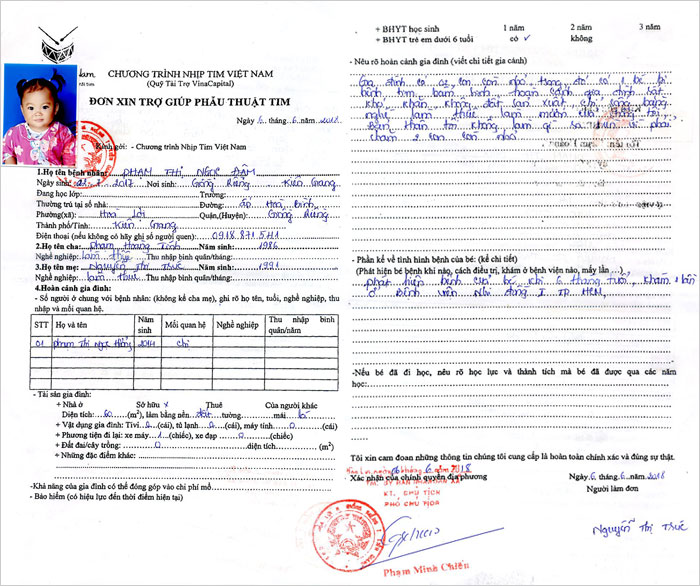 CHƯƠNG TRÌNH NHỊP TIM VIỆT NAM
(Quỹ Tài Trợ VinaCapital)
ĐƠN XIN TRỢ GIÚP PHẪU THUẬT TIM
Ngày 6 tháng 6 năm 2018
Kính gởi: - Chương trình Nhịp Tim Việt Nam
1.Họ tên bệnh nhân: PHẠM THỊ NGỌC ĐẬM
Ngày sinh: 2017 Nơi sinh: Giồng Riềng Kiên Giang
Đang học lớp: Trường:
Thường trú tại số nhà: Đường: ấp Hoà Bình
Phường(xã): Hoà Lợi Quận,(Huyện): Giồng Riềng
Thành phố/Tỉnh: Kiên Giang
Điện thoại (nếu không có hãy ghi số người quen): 0918 871 541
2.Họ tên cha: phạm Hoàng Tính Năm sinh: 1986
Nghề nghiệp: làm thuê Thu nhập bình quân/tháng:
3.Họ tên mẹ: Nguyễn Thị Trúc Năm sinh: 1991
Nghề nghiệp: làm thuê Thu nhập bình quân/tháng:
4.Hoàn cảnh gia đình:
- Số người ở chung với bệnh nhân: (không kể cha mẹ), ghi rõ họ tên, tuổi, nghề nghiệp, thu
nhập và mối quan hệ.
STT Họ và tên Năm sinh Mối quan hệ Nghề nghiệp Thu nhập bình quân/năm
01 phạm Thị Ngọc Hồng 2014 chị
- Tài sản gia đình:
+ Nhà ở Sở hữu x Thuê Của người khác
Diện tích: 60 (m²), làm bằng nền đất tường mái lá
+ Vật dụng gia đình: Tivi 0 (cái), tủ lạnh 0 (cái), máy tính 0 (cái)
+ Phương tiện đi lại: xe máy 1 (chiếc), xe đạp 0 (chiếc)
+ Đất đai/cây trồng: 0 diện tích (m²)
+ Những đặc điểm khác:
-Khả năng của gia đình có thể đóng góp vào chi phí mổ
- Bảo hiểm (có hiệu lực đến thời điểm hiện tại)
+ BHYT học sinh 1 năm 2 năm 3 năm
+ BHYT trẻ em dưới 6 tuổi có ✓ không
-Nêu rõ hoàn cảnh gia đình (viết chi tiết gia cảnh)
Gia đình có 02 con còn nhỏ, trong đó có 1 bé bị
bệnh tim bẩm sinh, hoàn cảnh gia đình rất
khó khăn không đất sản xuất, chỉ sống bằng
nghề làm thuê, làm mướn
Bản thân tôi không làm gì vì phải
chăm 2 con còn nhỏ
- Phần kể về tình hình bệnh của bé: (kể chi tiết)
(Phát hiện bé bệnh khi nào, cách điều trị, khám ở bệnh viện nào, mấy lần...)
phát hiện bệnh của bé khi 6 tháng tuổi, khám 1 lần
ở Bệnh viện Nhi đồng I TP HCM,
-Nếu bé đã đi học, nêu rõ học lực và thành tích mà bé đã được qua các năm
học:
Tôi xin cam đoan những thông tin chúng tôi cung cấp là hoàn toàn chính xác và đúng sự thật.
Hòa Lợi, ngày 06 tháng 6 năm 2018
Xác nhận của chính quyền địa phương
TM. ỦY BAN NHÂN DÂN XÃ
KT. CHỦ TỊCH
PHÓ CHỦ TỊCH
Phạm Minh Chiến
Ngày 6 tháng 6 năm 2018
Người làm đơn
Nguyễn Thị Trúc